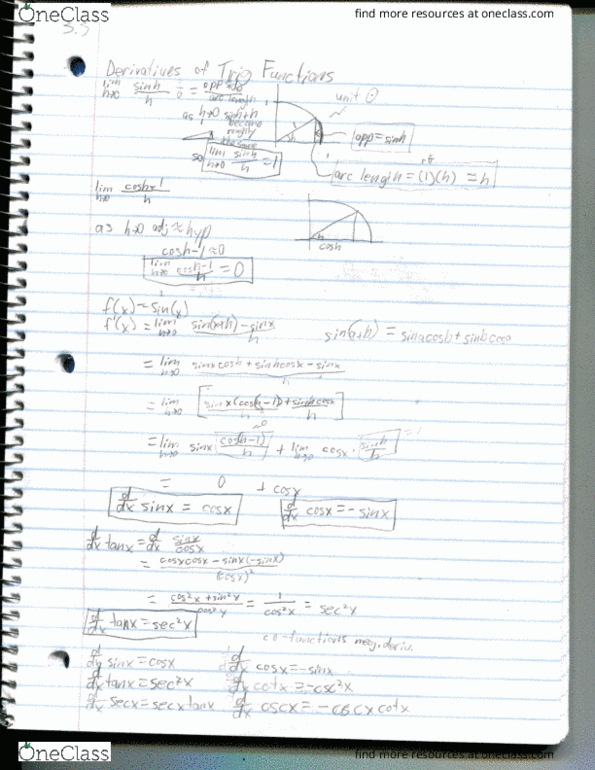 OneClass
find more resources at oneclass.com
3.3
Derivatives of Trig Functions
lim h→0 sinh/h = opp side/arc length
unit ⊙
as h→0 sinh+h
become roughly the same
opp = sinh
so lim h→0 sinh/h = 1
arc length = (1)(h) = h
lim h→0 cosh-1/h
as h→0 adj ≈ hyp
cosh
cosh-1 ≈ 0
lim h→0 cosh-1/h = 0
f(x) = sin(x)
f'(x) = lim h→0 sin(x+h) - sinx/h
sin(a+h) = sinacosb + sinbcosa
= lim h→0 sinxcosh + sinhcosx - sinx/h
= lim h→0 [sinx(cosh-1)/h + sinhcosx/h]
= lim h→0 sinx (cosh-1)/h + lim h→0 cosx · sinh/h
= 0 + cosx
d/dx sinx = cosx
d/dx cosx = -sinx
d/dx tanx = d/dx sinx/cosx
= cosxcosx - sinx(-sinx)/(cosx)²
= cos²x + sin²x/cos²x = 1/cos²x = sec²x
d/dx tanx = sec²x
co-functions neg. deriv.
d/dx sinx = cosx d/dx cosx = -sinx
d/dx tanx = sec²x d/dx cotx = -csc²x
d/dx secx = secx tanx d/dx cscx = -cscx cotx
OneClass
find more resources at oneclass.com